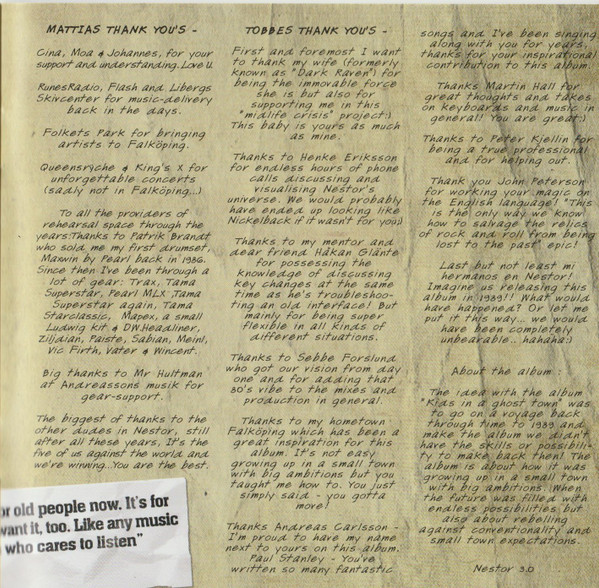 MATTIAS THANK YOU'S -
Cina, Moa & Johannes, for your
support and understanding. Love U.
RunesRadio, Flash and Libergs
Skivcenter for music-delivery
back in the days.
Folkets Park for bringing
artists to Falköping.
Queensrÿche & King's X for
unforgettable concerts
(sadly not in Falköping...)
To all the providers of
rehearsal space through the
years:Thanks to Patrik Brandt
who sold me my first drumset,
Maxwin by Pearl back in 1986.
Since then I've been through a
lot of gear: Trax, Tama
Superstar, Pearl MLX ,Tama
Superstar again, Tama
Starclassic, Mapex, a small
Ludwig kit & DW.Headliner,
Zildjian, Paiste, Sabian, Meinl,
Vic Firth, Vater & Wincent.
Big thanks to Mr Hultman
at Andreassons musik for
gear-support.
The biggest of thanks to the
other dudes in Nestor, still
after all these years, It's the
five of us against the world and
we're winning...You are the best.
or old people now. It's for
want it, too. Like any music
who cares to listen"
TOBBES THANK YOU'S -
First and foremost I want
to thank my wife (formerly
known as "Dark Raven") for
being the immovable force
she is but also for
supporting me in this
"midlife crisis" project:)
This baby is yours as much
as mine.
Thanks to Henke Eriksson
for endless hours of phone
calls discussing and
visualising Nestor's
universe. We would probably
have ended up looking like
Nickelback if it wasn't for you;)
Thanks to my mentor and
dear friend Håkan Glänte
for possessing the
knowledge of discussing
key changes at the same
time as he's troubleshoo-
ting an old interface! But
mainly for being super
flexible in all kinds of
different situations.
Thanks to Sebbe Forslund
who got our vision from day
one and for adding that
80's vibe to the mixes and
production in general.
Thanks to my hometown
Falköping which has been a
great inspiration for this
album. It's not easy
growing up in a small town
with big ambitions but you
taught me how to. You just
simply said - you gotta
move!
Thanks Andreas Carlsson -
I'm proud to have my name
next to yours on this album.
Paul Stanley - You've
written so many fantastic
songs and I've been singing
along with you for years,
thanks for your inspirational
contribution to this album.
Thanks Martin Hall for
great thoughts and takes
on keyboards and music in
general! You are great:)
Thanks to Peter Kjellin for
being a true professional
and for helping out.
Thank you John Peterson
for working your magic on
the English language! "This
is the only way we know
how to salvage the relics
of rock and roll from being
lost to the past" epic!
Last but not least mi
hermanos en Nestor!
Imagine us releasing this
album in 1989!! What would
have happened? Or let me
put it this way... we would
have been completely
unbearable.. hahaha:)
About the album :
The idea with the album
"Kids in a ghost town" was
to go on a voyage back
through time to 1989 and
make the album we didn't
have the skills or possibili-
ty to make back then! The
album is about how it was
growing up in a small town
with big ambitions. When
the future was filled with
endless possibilities but
also about rebelling
against conventionality and
small town expectations.
Nestor 3.0